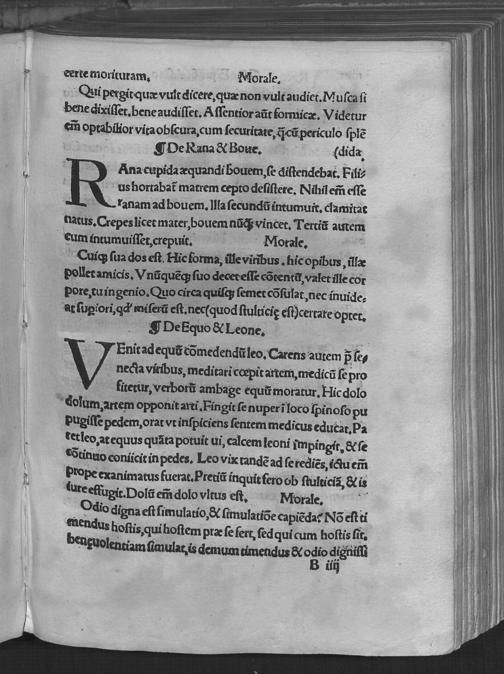 certe morituram.          Morale.
Qui pergit quæ vult dicere, quæ non vult audiet. Musca si
bene dixisset, bene audisset. Assentior aūt formicæ. Videtur
em̄ optabilior vita obscura, cum securitate, q̄cū periculo splē
¶ De Rana & Boue.          (dida.
RAna cupida æquandi bouem, se distendebat. Fili-
us hortabat̄ matrem cepto desistere. Nihil em̄ esse
ranam ad bouem. Illa secundū intumuit. clamitat
natus. Crepes licet mater, bouem nūq̄ vincet. Tertiū autem
cum intumuisset, crepuit.          Morale.
Cuiq; sua dos est. Hic forma, ille viribus. hic opibus, illæ
pollet amicis. Vnūquēq; suo decet esse cōtentū, valet ille cor
pore, tu ingenio. Quo circa quisq; semet cōsulat, nec inuide-
at supiori, qd' miserū est. nec (quod stulticię est) certare optet.
¶ De Equo & Leone.
VEnit ad equū cōmedendū leo. Carens autem p̄ se-
necta viribus, meditari cœpit artem, medicū se pro
fitetur, verborū ambage equū moratur. Hic dolo
dolum, artem opponit arti. Fingit se nuper ī loco spinoso pu
pugisse pedem, orat vt inspiciens sentem medicus educat. Pa
ret leo, at equus quāta potuit ui, calcem leoni īmpingit, & se
cōtinuo coniicit in pedes. Leo vix tandē ad se rediēs, ictu em̄
prope exanimatus fuerat. Pretiū inquit fero ob stulticiā, & is
iure effugit. Dolū em̄ dolo vltus est.          Morale.
Odio digna est simulatio, & simulatiōe capiēda. Nō est ti
mendus hostis, qui hostem præ se fert, sed qui cum hostis sit.
beneuolentiam simulat, is demum timendus & odio dignissi
B iiij